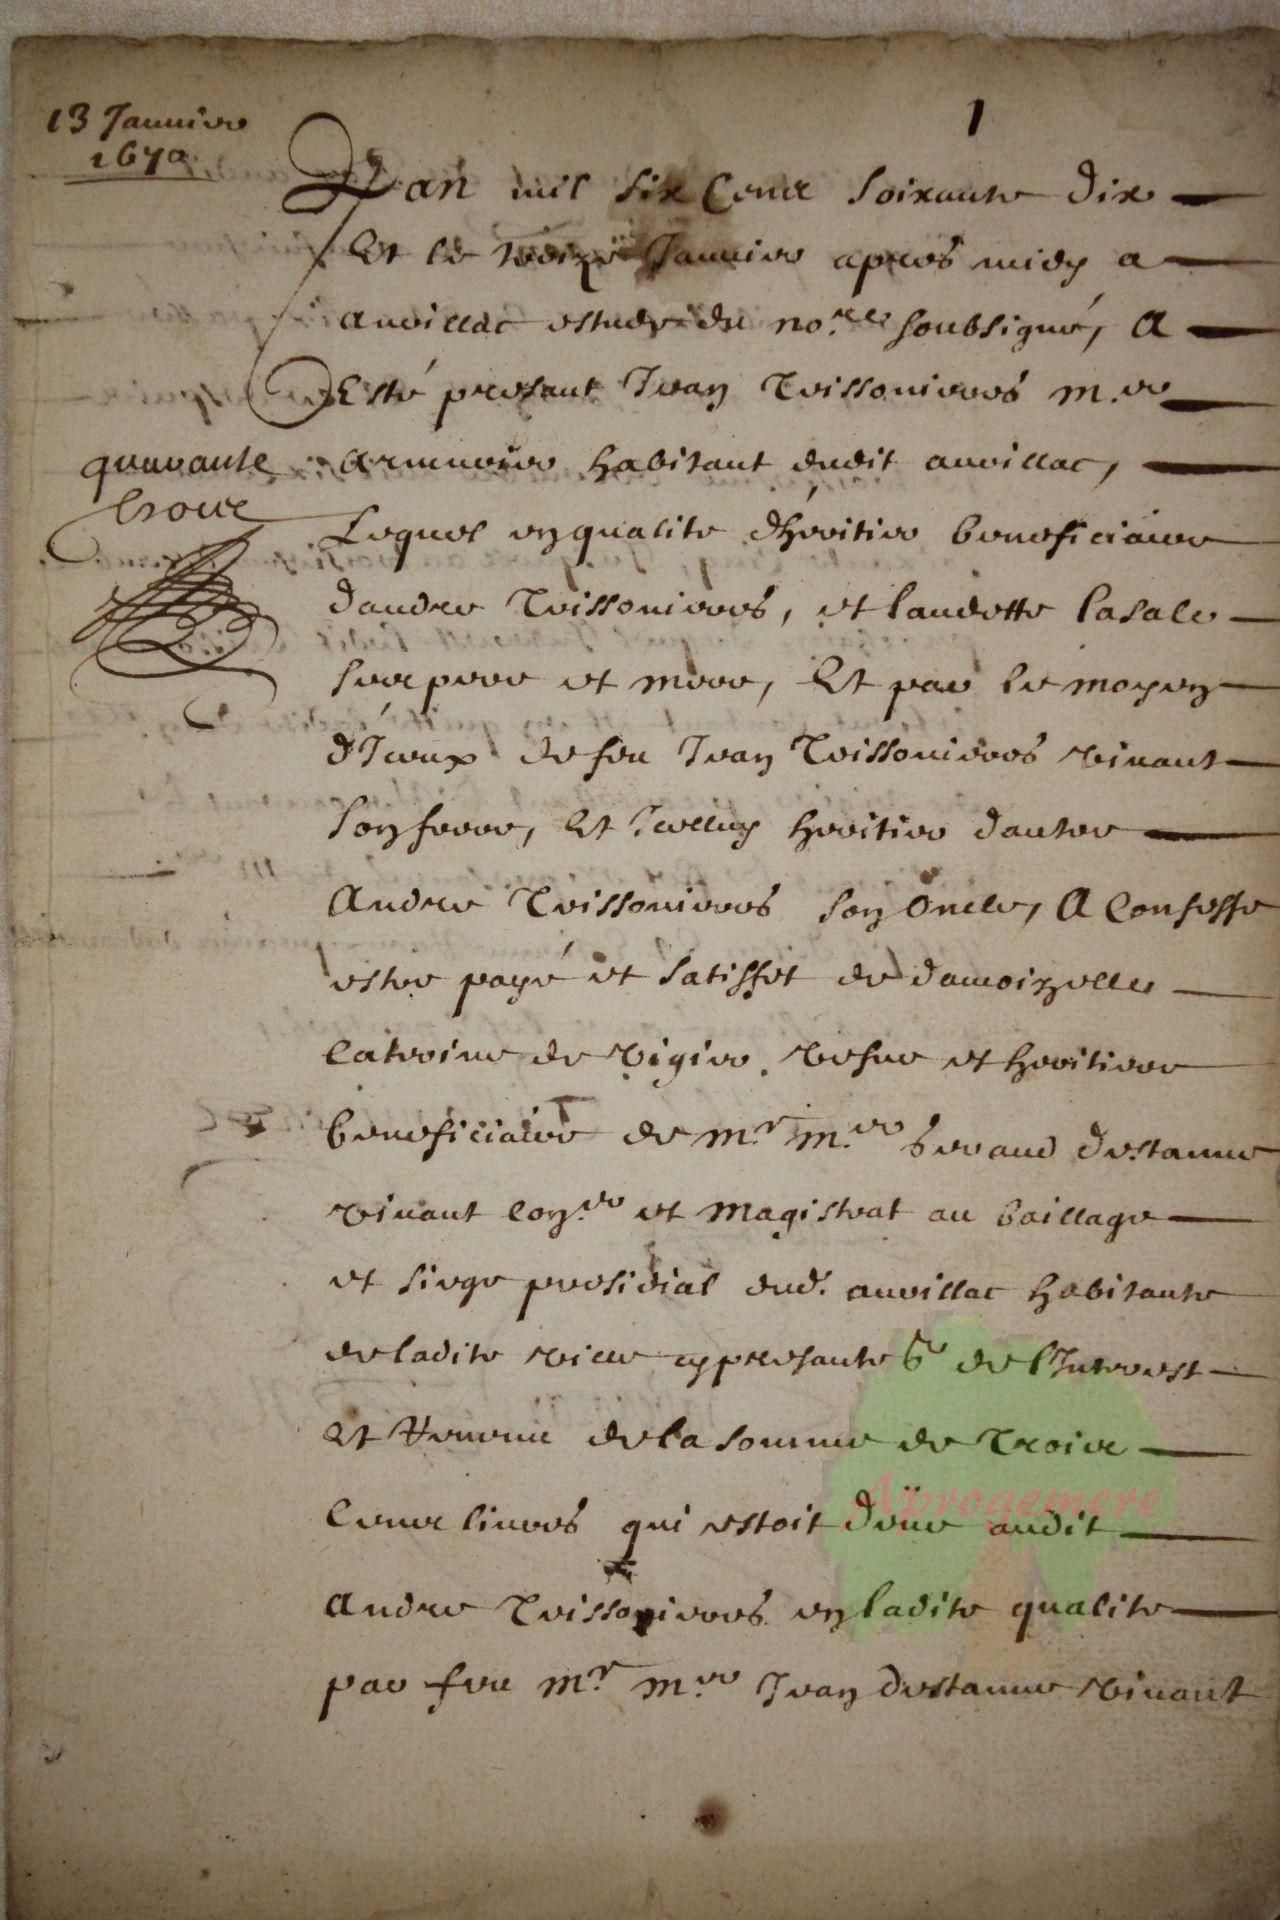 1
13 Janvier
1670
L'an mil six Cens soixante dix
Et le treize Janvier apres midy a
auvillac estude du no.re soubsigné, A
Esté presant Jean Teissonieres m.re
quarante
trois
armurier habitant dudit auvillac,
Lequel en qualite d'héritier beneficiaire
dandre Teissonieres, et laudette lasale
ses pere et mere, Et par le moyen
d'Jceux de feu Jean Teissonieres vivant
son frere, Et Jcelluy heritier dautre
Andre Teissonieres son oncle, A Confesse
estre payé et satisfet de damoizelle
Catreine de Vigier vefve et heritiere
beneficiaire de m.r m.re Geraud destanne
vivant con.er et magistrat au baillage
et siege presidial dud. auvillac habitante
de ladite ville presante de l'Jnterest
Et Vennue de la somme de Trois
Cens livres qui estoit deüe audit
Andre Teissonieres en ladite qualite
par feu m.r m.re Jean destanne vivant
Aprogemere